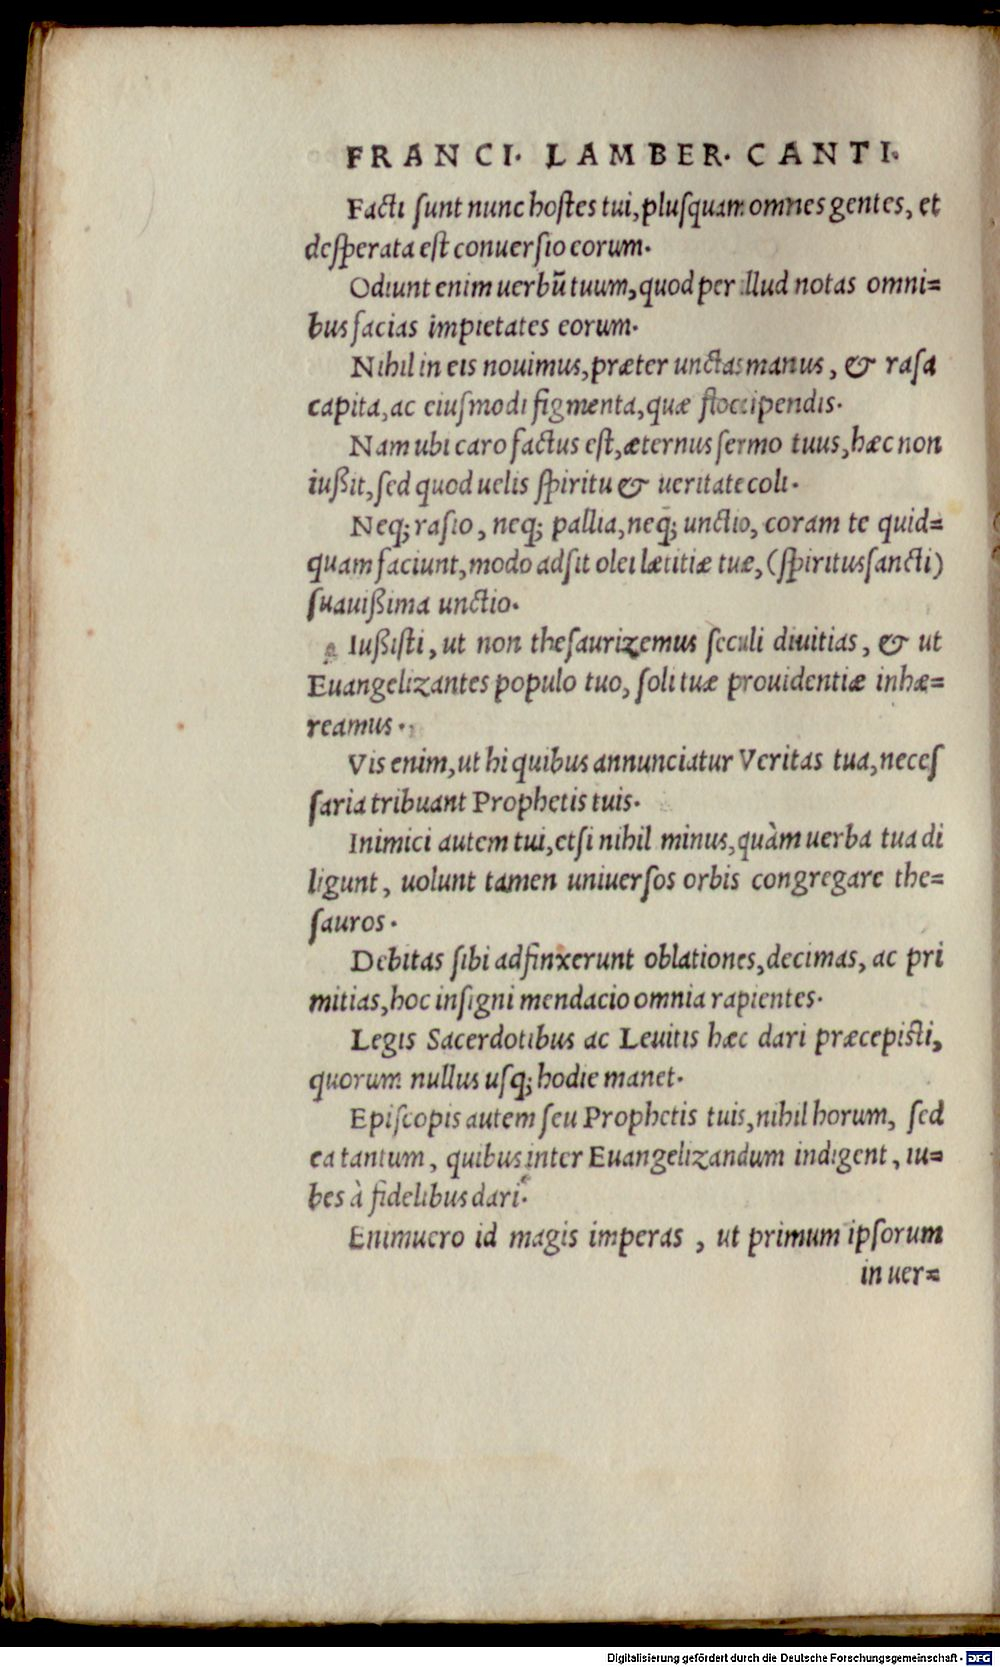 FRANCI. LAMBER. CANTI.
Facti ſunt nunc hoſtes tui, pluſquam omnes gentes, et
deſperata eſt conuerſio eorum.
Odiunt enim uerbū tuum, quod per illud notas omni=
bus facias impietates eorum.
Nihil in eis nouimus, præter unctas manus, & raſa
capita, ac eiuſmodi figmenta, quæ floccipendis.
Nam ubi caro factus eſt, æternus ſermo tuus, hæc non
iußit, ſed quod uelis ſpiritu & ueritate coli.
Neq; raſio, neq; pallia, neq; unctio, coram te quid=
quam faciunt, modo adſit olei lætitiæ tuæ, (ſpiritus ſancti)
ſuauißima unctio.
Iußiſti, ut non theſaurizemus ſeculi diuitias, & ut
Euangelizantes populo tuo, ſoli tuæ prouidentiæ inhæ=
reamus.
Vis enim, ut hi quibus annunciatur Veritas tua, neceſ
ſaria tribuant Prophetis tuis.
Inimici autem tui, etſi nihil minus, quàm uerba tua di
ligunt, uolunt tamen uniuerſos orbis congregare the=
ſauros.
Debitas ſibi adfinxerunt oblationes, decimas, ac pri
mitias, hoc inſigni mendacio omnia rapientes.
Legis Sacerdotibus ac Leuitis hæc dari præcepiſti,
quorum nullus uſq; hodie manet.
Epiſcopis autem ſeu Prophetis tuis, nihil horum, ſed
ea tantum, quibus inter Euangelizandum indigent, iu=
bes à fidelibus dari.
Enimuero id magis imperas, ut primum ipſorum
in uer=
Digitalisierung gefördert durch die Deutsche Forschungsgemeinschaft - DFG